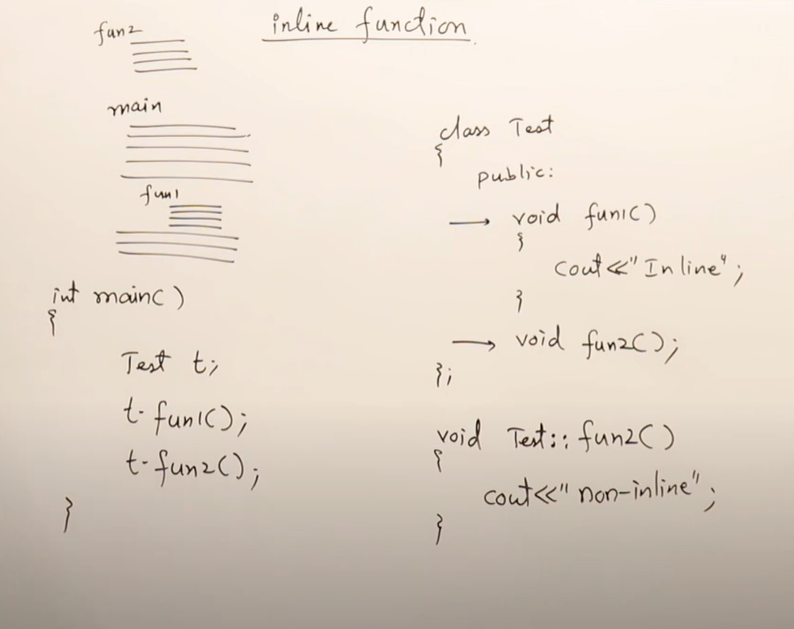 inline function
fun2
main
fun1
int main()
{
Test t;
t.fun1();
t.fun2();
}
class Test
{
public:
void fun1()
{
cout<<"Inline";
}
void fun2();
};
void Test::fun2()
{
cout<<"non-inline";
}